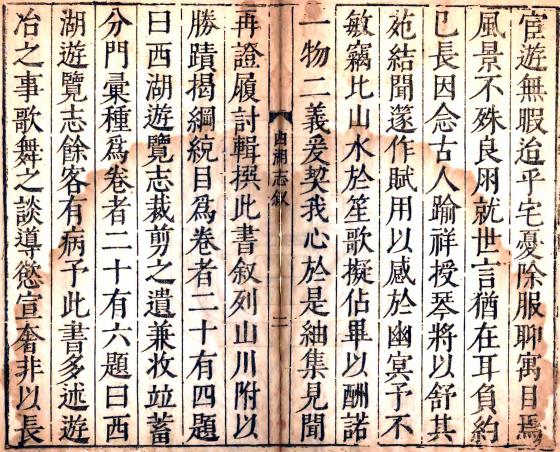 宦遊無暇迨乎宅憂除服聊寓目焉
風景不殊良朋就世言猶在耳負約
已長因念古人踰祥授琴將以舒其
苑結聞篴作賦用以感於幽冥予不
敏竊比山水於笙歌擬佔畢以酬諾
一物二義爰契我心於是紬集見聞
西湖志叙
二
再證履討輯撰此書叙列山川附以
勝蹟揭綱統目爲卷者二十有四題
曰西湖遊覽志裁剪之遺兼收竝蓄
分門彙種爲卷者二十有六題曰西
湖遊覽志餘客有病予此書多述遊
冶之事歌舞之談導慾宣奢非以長